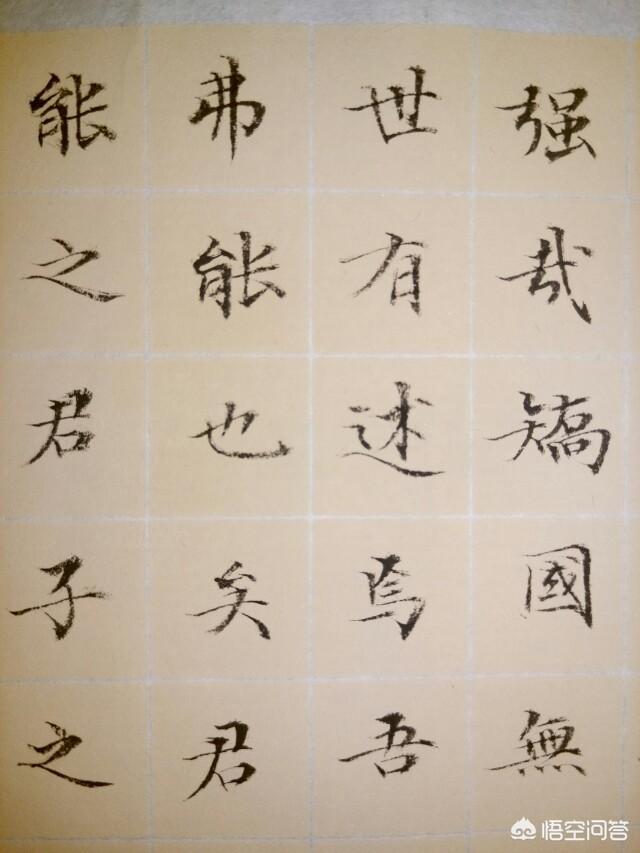 强哉矯國無
世有述焉吾
弗能也矣君
能之君子之
悟空问答